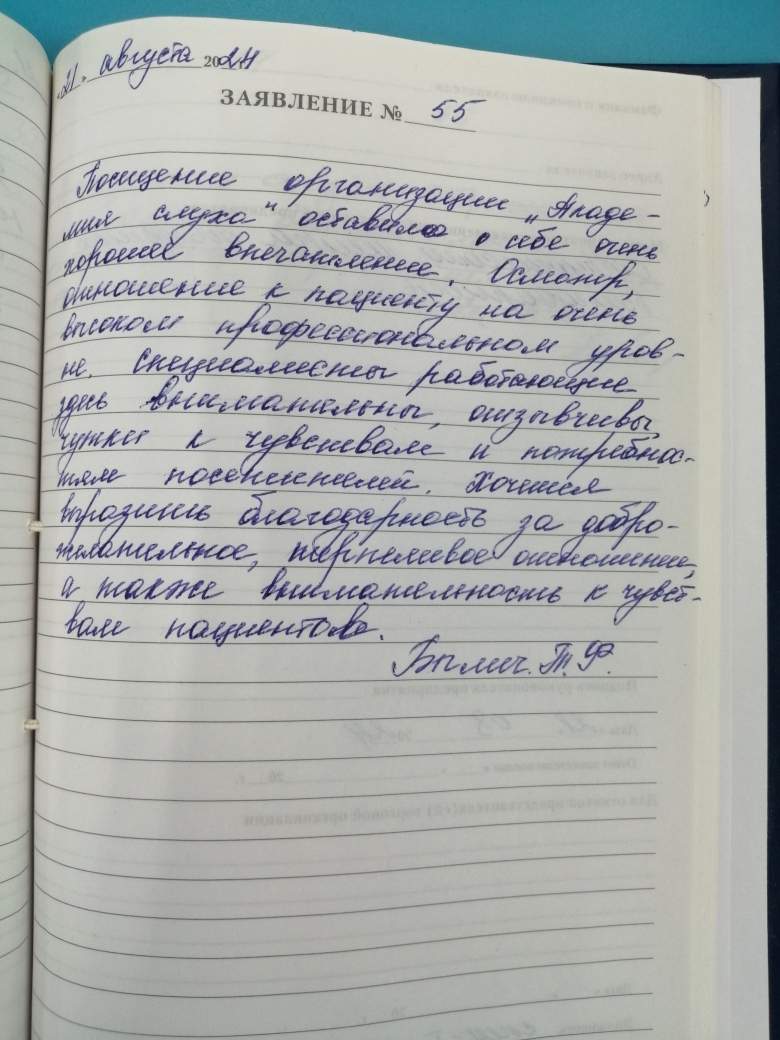 „21„ августа 2024
ЗАЯВЛЕНИЕ № 55
Посещение организации „Акаде-
мия слуха" оставило о себе очень
хорошее впечатление. Осмотр,
отношение к пациенту на очень
высоком профессиональном уров-
не. Специалисты работающие
здесь внимательны, отзывчивы,
чутки к чувствам и потребнос-
тям посетителей. Хочется
выразить благодарность за добро-
желательное, терпеливое отношение,
а также внимательность к чувст-
вам пациентов.
Т.Ф.